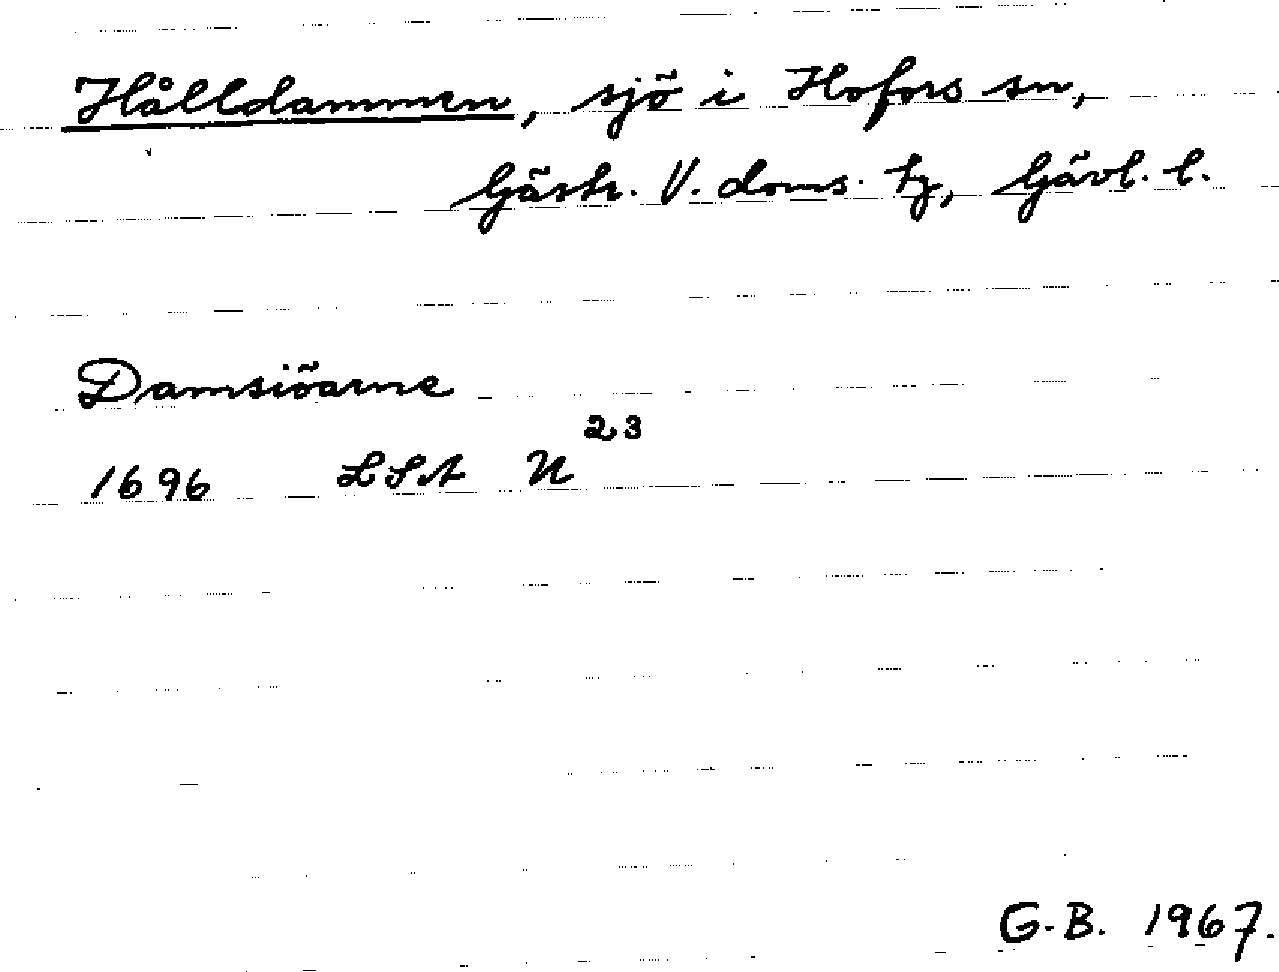 Hålldammen, sjö i Hofors sn,
Gästr. V. doms. tg, Gävl. l.
Damsiöarne
1696 LSA U 23
G.B. 1967.